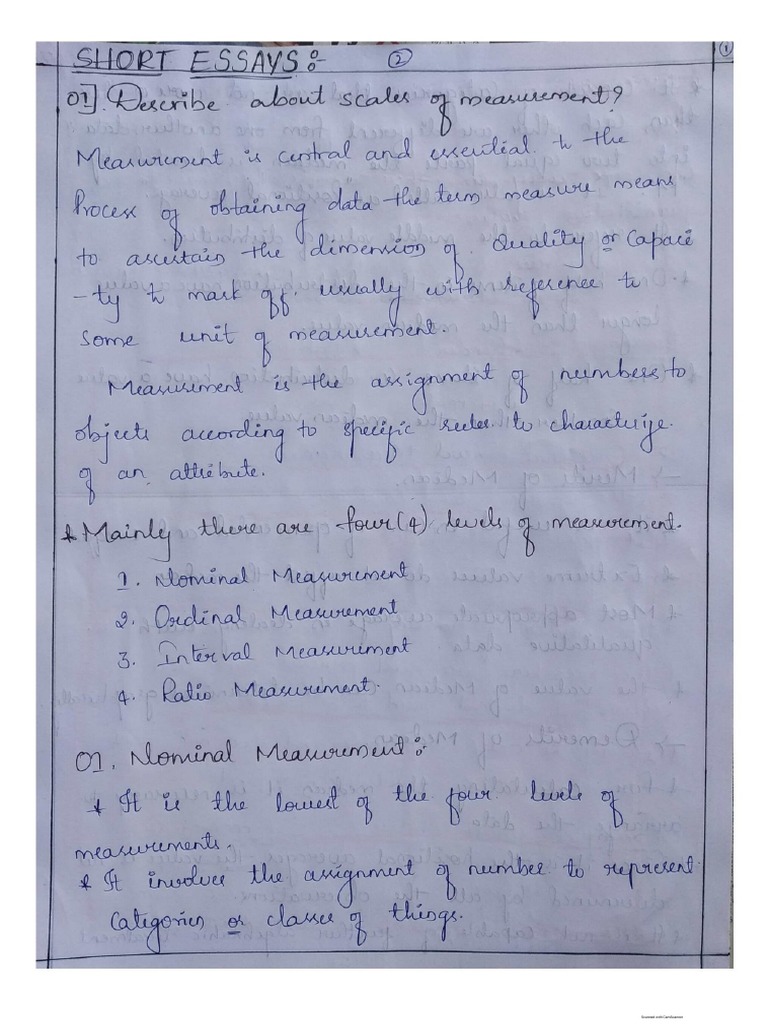 SHORT ESSAYS:- ② ①
01]. Describe about scales of measurement?
Measurement is central and essential to the
Process of obtaining data the term measure means
to ascertain the dimension of. Quality or Capaci
-ty to mark off. usually with reference to
some unit of measurement.
Measurement is the assignment of numbers to
objects according to specific rules to characterize.
of an attribute.
* Mainly there are four (4) levels of measurement.
1. Nominal Measurement
2. Ordinal Measurement
3. Interval Measurement
4. Ratio Measurement.
01. Nominal Measurement:-
* It is the lowest of the four levels of
measurements.
* It involve the assignment of number to represent
Categories or classes of things.
Scanned with CamScanner